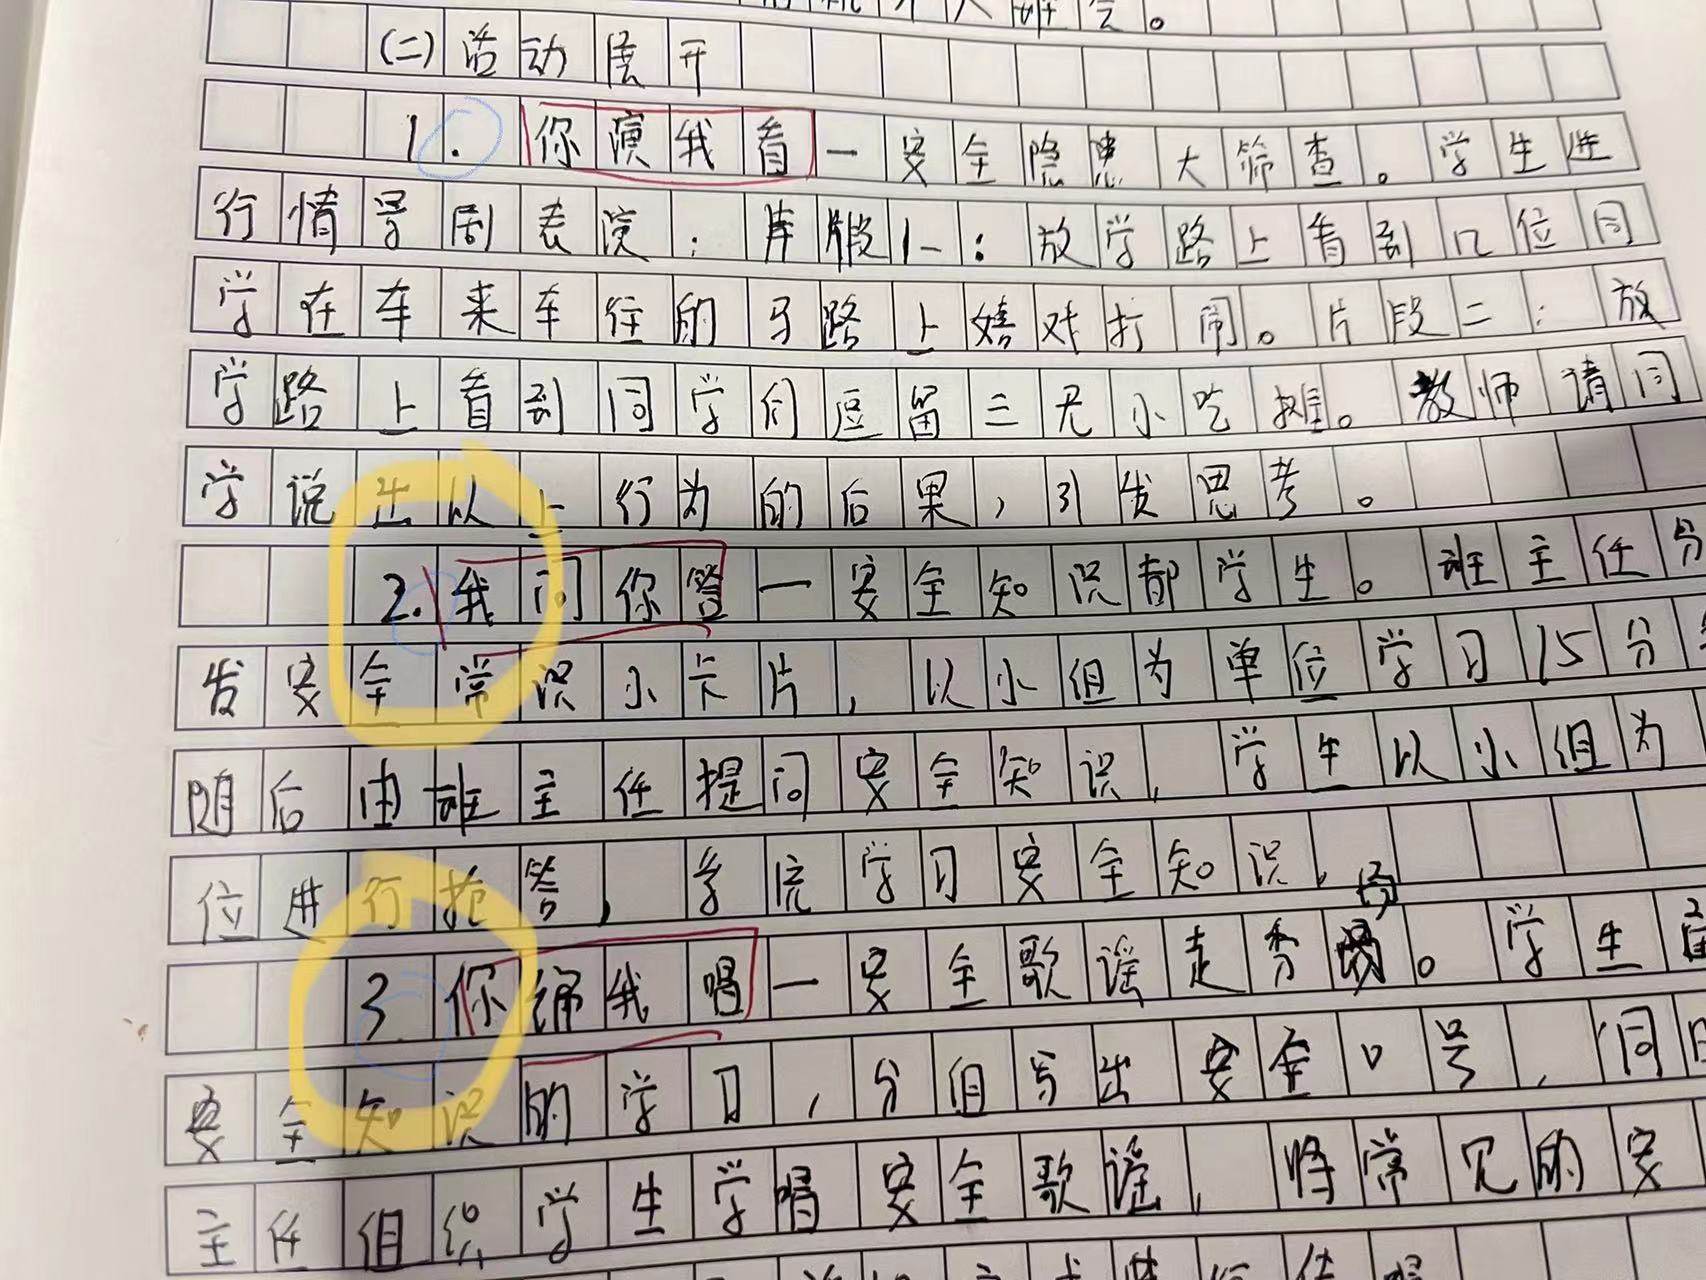 (二)活动展开
1.你演我看一安全隐患大筛查。学生进
行情景剧表演：片段1一：放学路上看到几位同
学在车来车往的马路上嬉对打闹。片段二：放
学路上看到同学们逗留三无小吃摊。教师请同
学说出以上行为的后果，引发思考。
2.我问你答一安全知识都学生。班主任分
发安全常识小卡片，以小组为单位学习15分
随后由班主任提问安全知识，学生以小组为
位进行抢答，学完学习安全知识，
3.你编我唱一安全歌谣走秀场。学生
安全知识的学习，分组写出安全口号，同
主任组织学生学唱安全歌谣，将常见的安